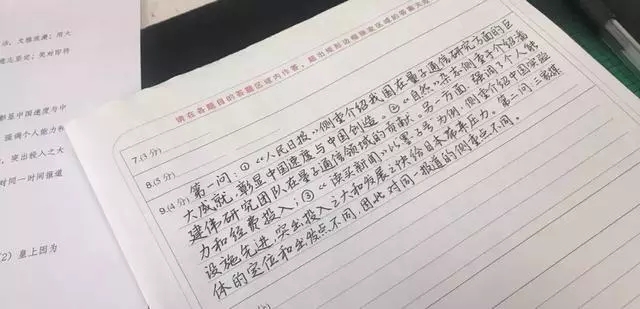 活、大雅浪漫；用大
难志坚定；笑对即将
彰显中国速度与中
强调个人能力和
突出投入之大
对同一时间报道
2）皇上因为
请在各题目的答题区域内作答，超出规定边框限定区域的答案无效
7.(3分)
8.(3分)
9.(4分)第一问：①《人民日报》侧重介绍我国在量子通信研究方面的巨
大成就，彰显中国速度与中国创造。②《自然·杂志》侧重于介绍我
建伟研究团队在量子通信领域的贡献。另一方面，强调了个人能
力和经费投入；③《读卖新闻》以墨子号为例，侧重介绍中国实验
设施先进，突出投入之大和发展之快给日本带来压力。第二问：三家媒
体的定位和出发点不同，因此对同一报道的侧重点不同。